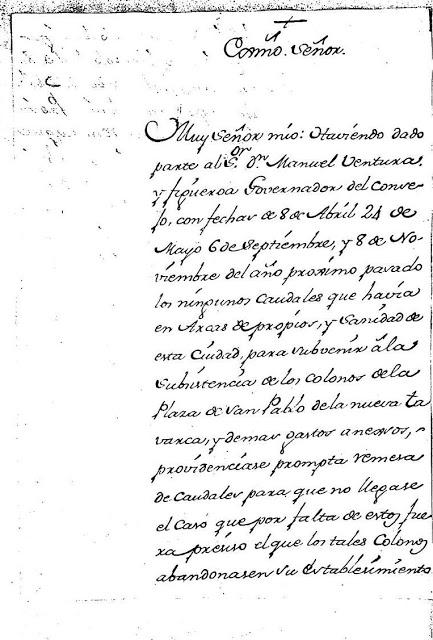 Exmô. Señor.
Muy Señor mio: Haviendo dado
parte al Sor. Dn. Manuel Ventura
y figueroa Governador del Conse-
jo, con fechas de 8 de Abril 24 de
Mayo 6 de Septiembre, y 8 de No-
viembre del año proximo pasado
los ningunos Caudales que havia
en Arcas de propios, y Sanidad de
esta Ciudad, para subvenir â la
Subsistencia de los Colonos de la
Plaza de San Pablo de la nueva ta
varca, y demas gastos anexos,
providenciase prompta remesa
de Caudales para que no llegase
el Caso que por falta de estos fue
ra preciso el que los tales Colonos
abandonasen su establesimiento